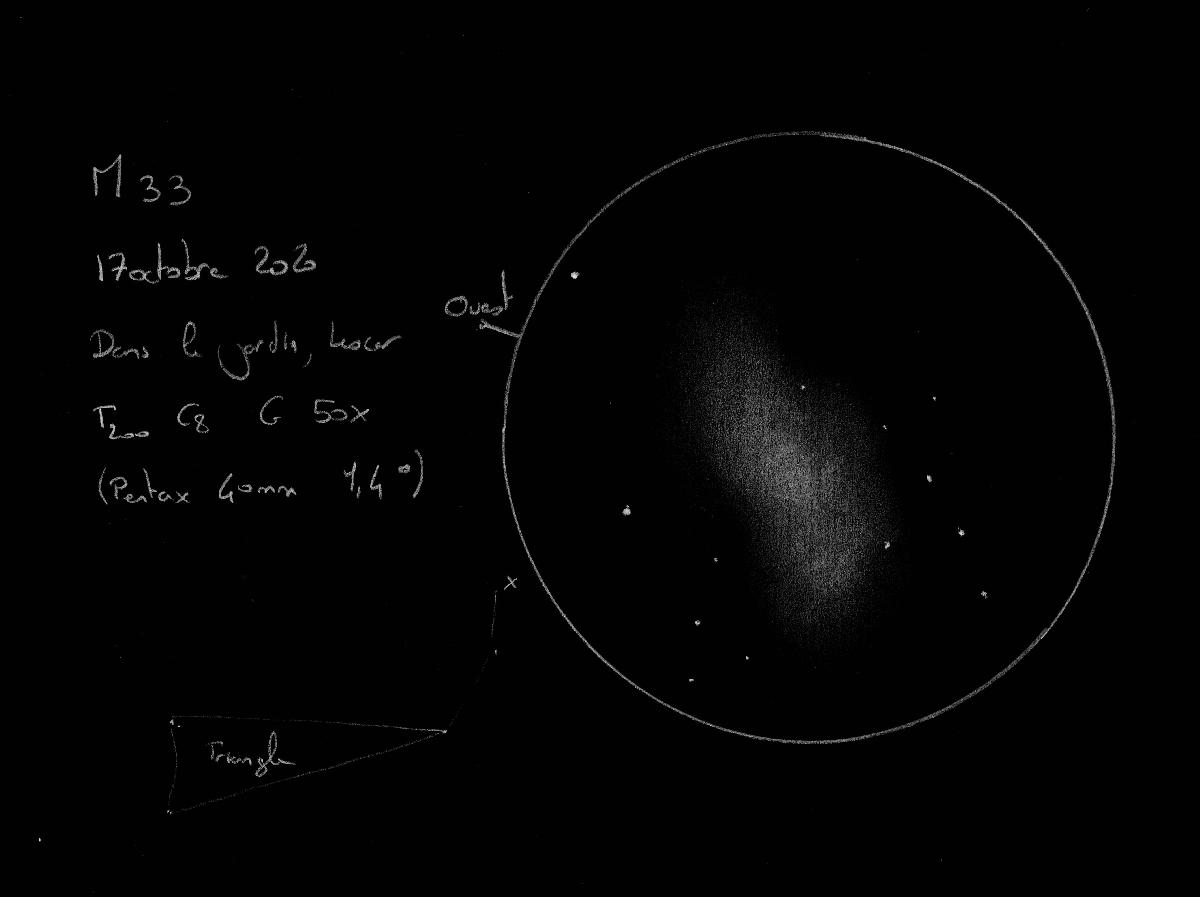 M 33
17 octobre 2020
Dans le jardin, Lescar
T200 C8 G 50x
(Pentax 40mm 1,4°)
Ouest
x
Triangle